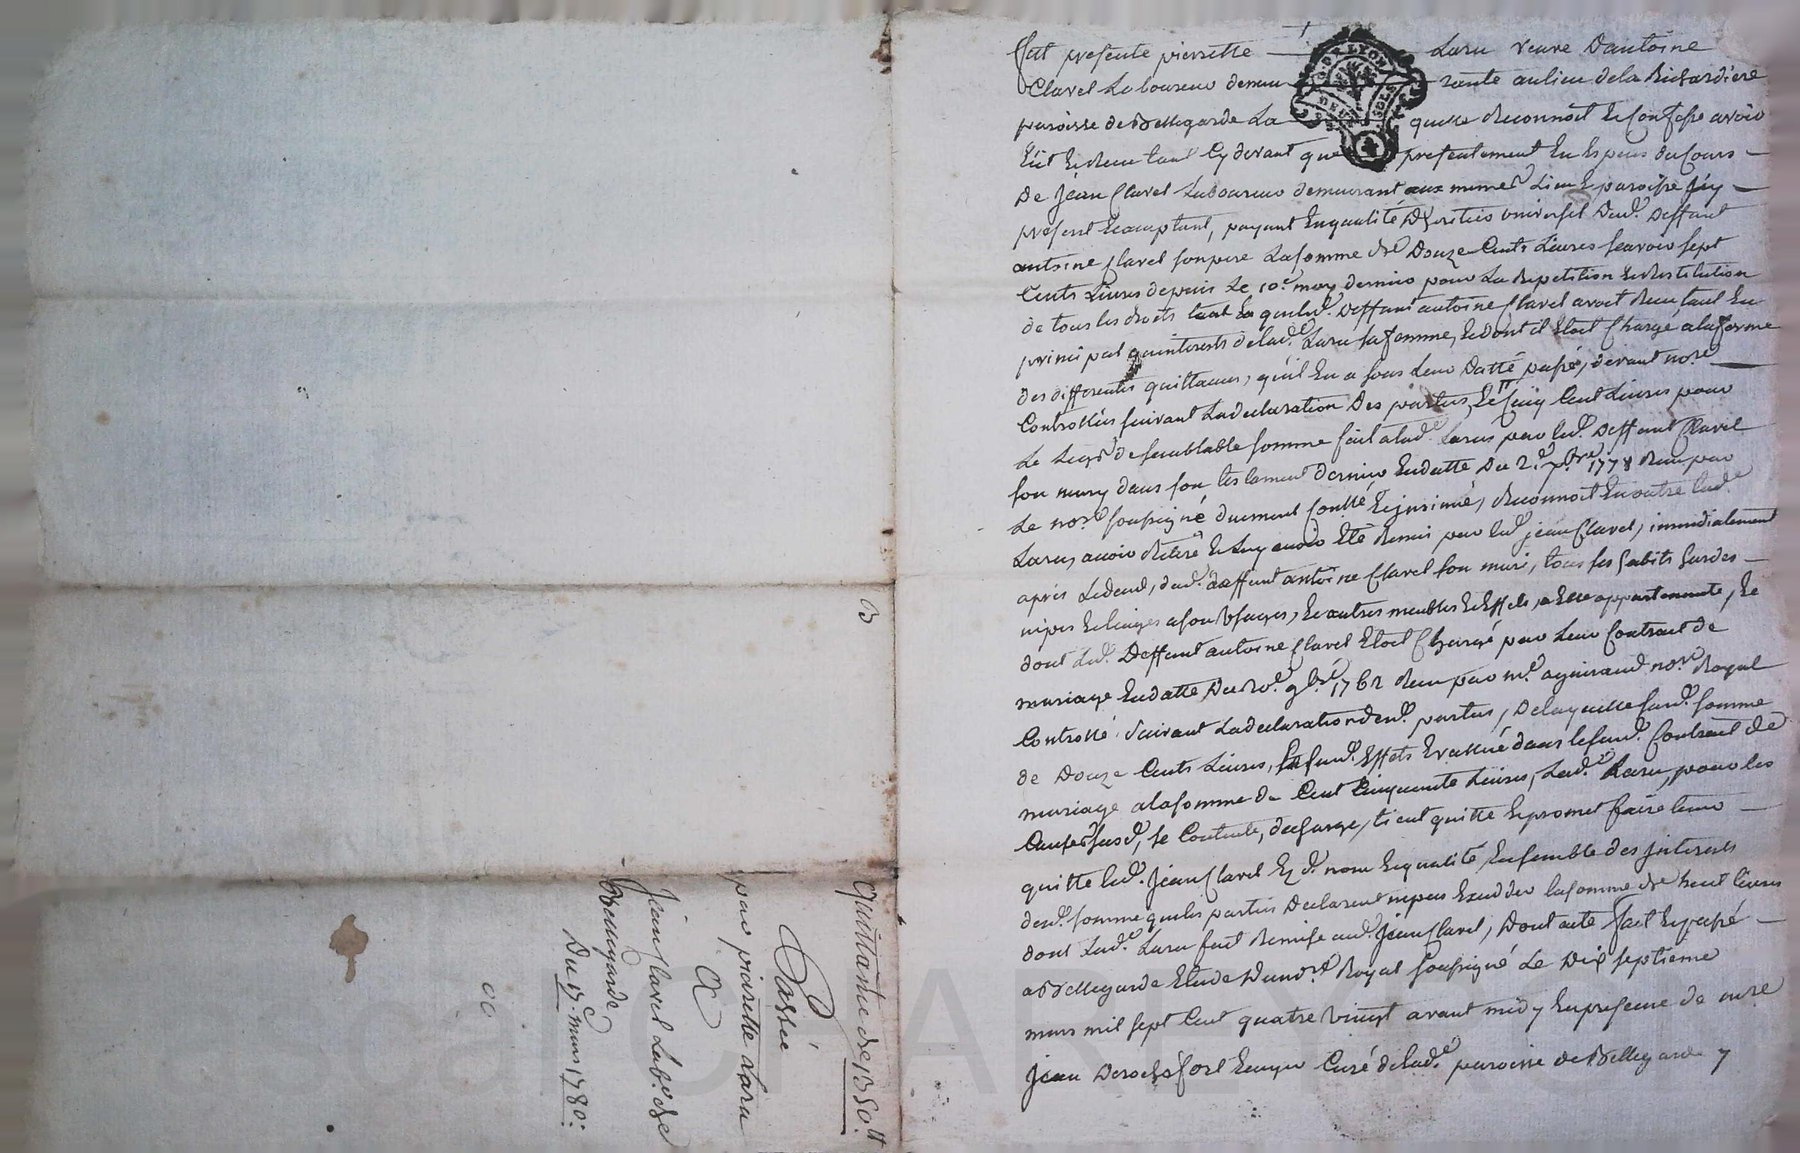 Fut presente pierrette Laru veuve D'antoine
Clavel Laboureur demeurante au lieu de la Richardiere
paroisse de Bellegarde La quelle Reconnoit et Confesse avoir
Eüt et Recu tant Cy devant que presentement En Especes du Cours
De Jean Clavel Laboureur demeurant aux memes Lieu et paroisse jcy
present et acceptant, payant En qualité D'heritier universel Dud. Deffunt
antoine Clavel son pere La somme de Douze Cents Livres scavoir sept
Cents Livres depuis Le 10e may dernier pour La Repetition et Restitution
de tous les droits que led. Deffunt antoine Clavel avoit Recu tant En
principal qu'interests de lad. Laru sa femme, et dont il Etoit Chargé a la forme
des differentes quittances, qu'il En a sous Leur Datte passé, devant nore
Controllées suivant La declaration Des parties, et Cinq Cent Livres pour
Le Legs de semblable somme fait a lad. Laru par led. Deffunt Clavel
son mary dans son testament dernier En datte Du 2e 7bre 1778 Recu par
Le nore soussigné duement Conllé et insinué, Reconnoit En outre lad.
Laru, avoir Retiré et Luy avoir Eté Remis par led. jean Clavel, immediatement
après Le deced, dud. deffunt antoine Clavel son mari, tous ses habits hardes
nipes et linges a son usages, et autres meubles et Effets, a Elle appartenants, et
dont Led. Deffunt antoine Clavel Etoit Chargé par Leur Contract de
mariage En datte Du 9bre 1762 Recu par Me aguiraud nore Royal
Controllé suivant La declaration des parties, De laquelle susd. somme
de Douze Cents Livres, susd. Effets Evallué dans le susd. Contract de
mariage a la somme de Cent Cinquante Livres, Lad. Laru, pour les
Causes susd., se Contente, decharge, tient quitte et promet faire tenir
quitte led. Jean Clavel Ez d. nom et qualité, Ensemble des jnterests
desd. somme que les parties Declarent n'pas Exceder la somme de huit livres
dont Lad. Laru fait Remise aud. Jean Clavel, Dont acte fait et passé
a Bellegarde Etude Du nore Royal soussigné Le Dix septieme
mars mil sept Cent quatre vingt avant midy En presence de mre
Jean Derochefort Curé de lad. paroisse de Bellegarde y
G. DE LYON
DEUX SOLS
4
B
Quittance de 1350.lt
Passée
par pierrette Laru
A
Jean Clavel Labr. de
Bellegarde
Du 17. mars 1780.